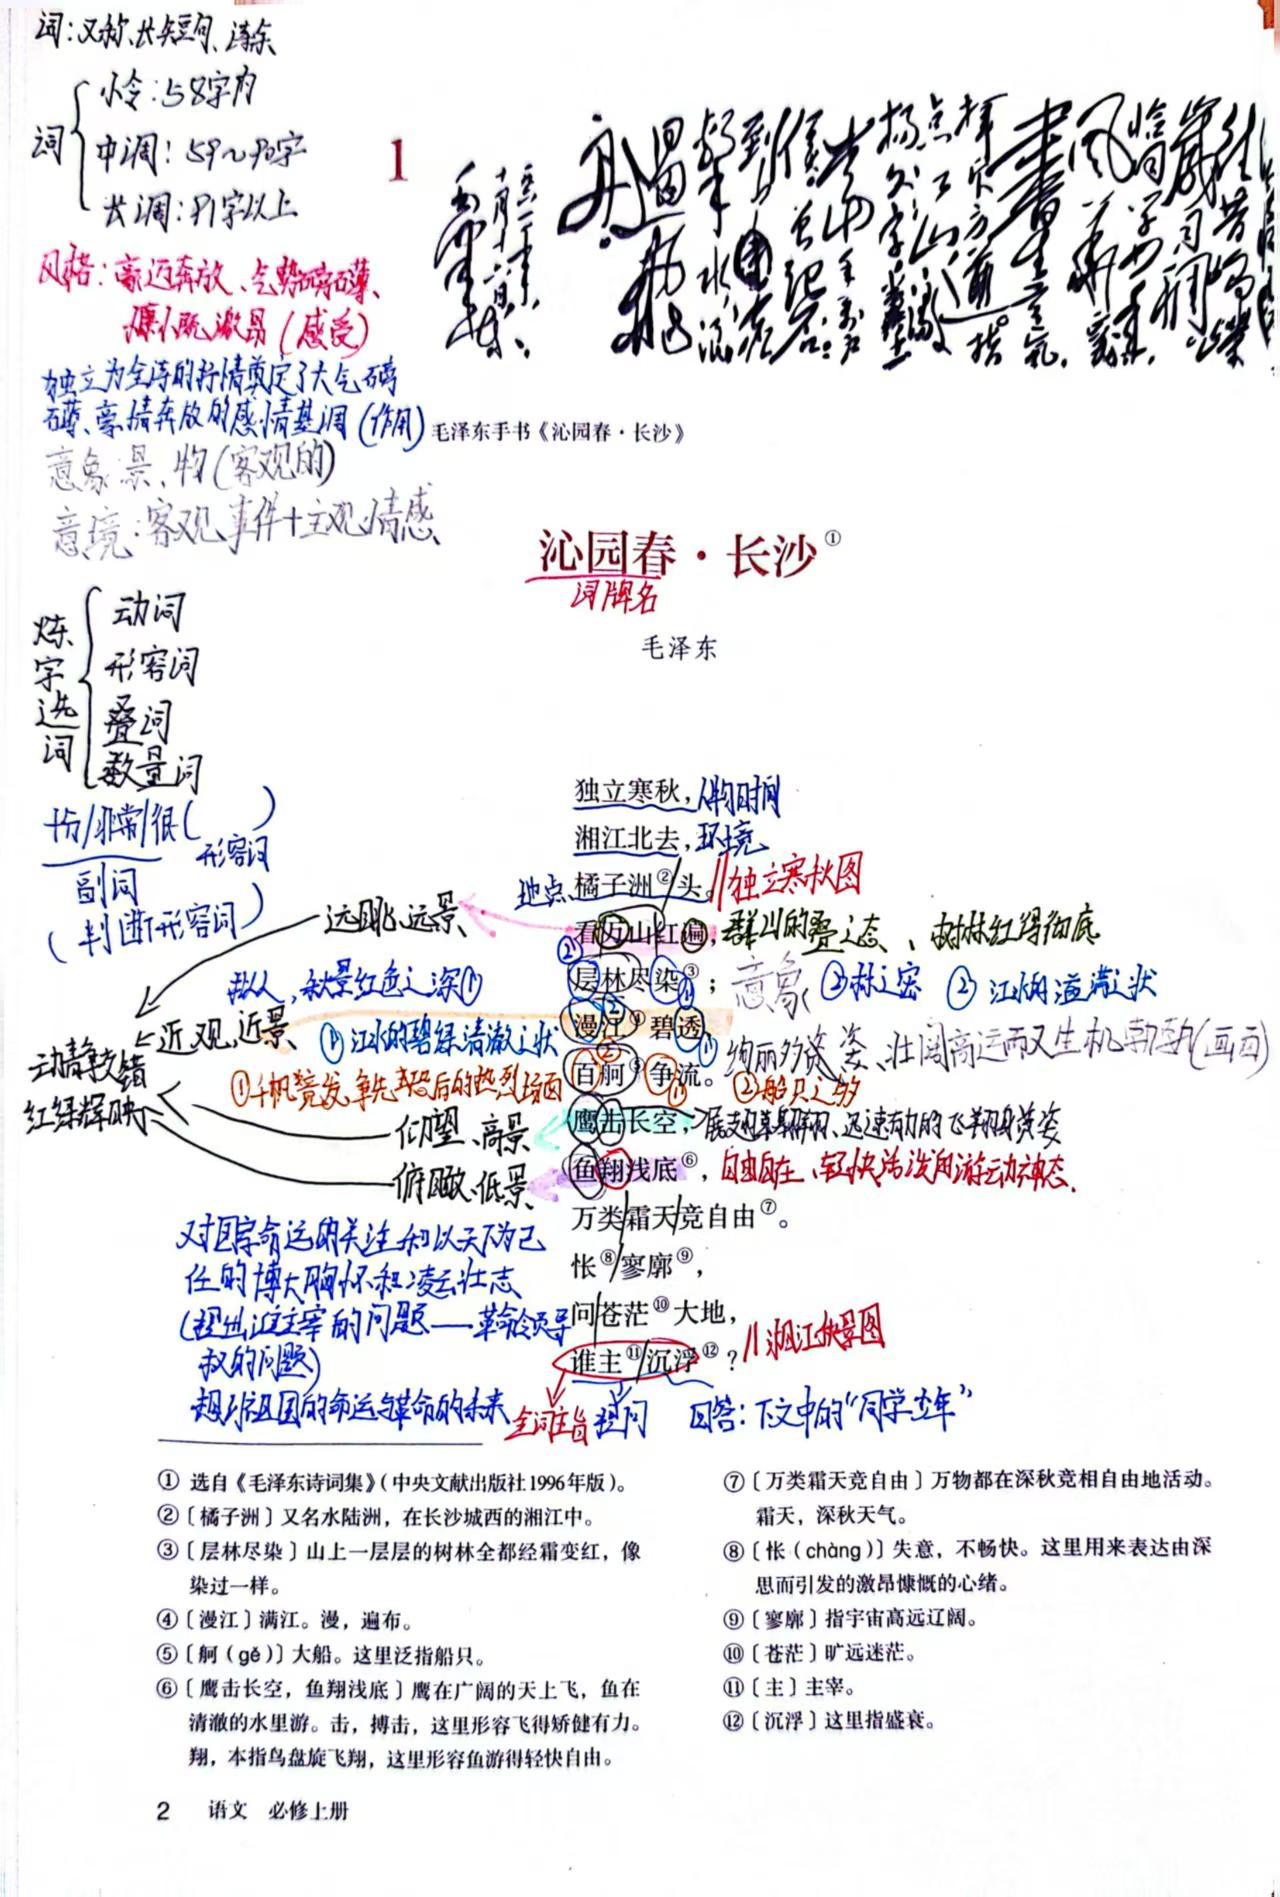 词:又称长短句、诗余
词
小令:58字内
中调:59~90字
长调:91字以上
1
风格:豪迈奔放、气势磅礴、
慷慨激昂(感受)
独立为全诗的抒情奠定了大气磅
礴、豪情奔放的感情基调(作用)
毛泽东手书《沁园春·长沙》
意象:景、物(客观的)
意境:客观事件+主观情感
沁园春·长沙①
词牌名
毛泽东
炼字选词
动词
形容词
叠词
数量词
十分/非常/很( )
形容词
副词
(判断形容词)
独立寒秋,人物时间
湘江北去,环境
地点 橘子洲②头。//独立寒秋图
远眺、远景
看万山红遍,群山的叠之态、树林红得彻底
拟人,秋景红色之深①
层林尽染③;意象 ②林之密 ② 江水的溢满之状
近观、近景
①江水的碧绿清澈之状
漫江④碧透,绚丽多姿、壮阔高远而又生机勃勃(画面)
动静交错
红绿辉映
①千帆竞发争先恐后的热烈场面
百舸⑤争流。②船只之多
仰望、高景
鹰击长空,
俯瞰、低景
鱼翔浅底⑥,自由自在、轻快活泼的游动神态.
万类霜天竞自由⑦。
怅⑧寥廓⑨,
问苍茫⑩大地,
谁主⑪沉浮⑫?//湘江秋景图
对国家命运的关注和以天下为己
任的博大胸怀和凌云壮志
(提出谁主宰的问题——革命领导
权的问题)
祖国的命运与革命的未来
全词主旨 提问 回答:下文中的“同学少年”
①选自《毛泽东诗词集》(中央文献出版社1996年版)。
②〔橘子洲〕又名水陆洲,在长沙城西的湘江中。
③〔层林尽染〕山上一层层的树林全都经霜变红,像
染过一样。
④〔漫江〕满江。漫,遍布。
⑤〔舸(gě)〕大船。这里泛指船只。
⑥〔鹰击长空,鱼翔浅底〕鹰在广阔的天上飞,鱼在
清澈的水里游。击,搏击,这里形容飞得矫健有力。
翔,本指鸟盘旋飞翔,这里形容鱼游得轻快自由。
⑦〔万类霜天竞自由〕万物都在深秋竞相自由地活动。
霜天,深秋天气。
⑧〔怅(chàng)〕失意,不畅快。这里用来表达由深
思而引发的激昂慷慨的心绪。
⑨〔寥廓〕指宇宙高远辽阔。
⑩〔苍茫〕旷远迷茫。
⑪〔主〕主宰。
⑫〔沉浮〕这里指盛衰。
2 语文 必修上册